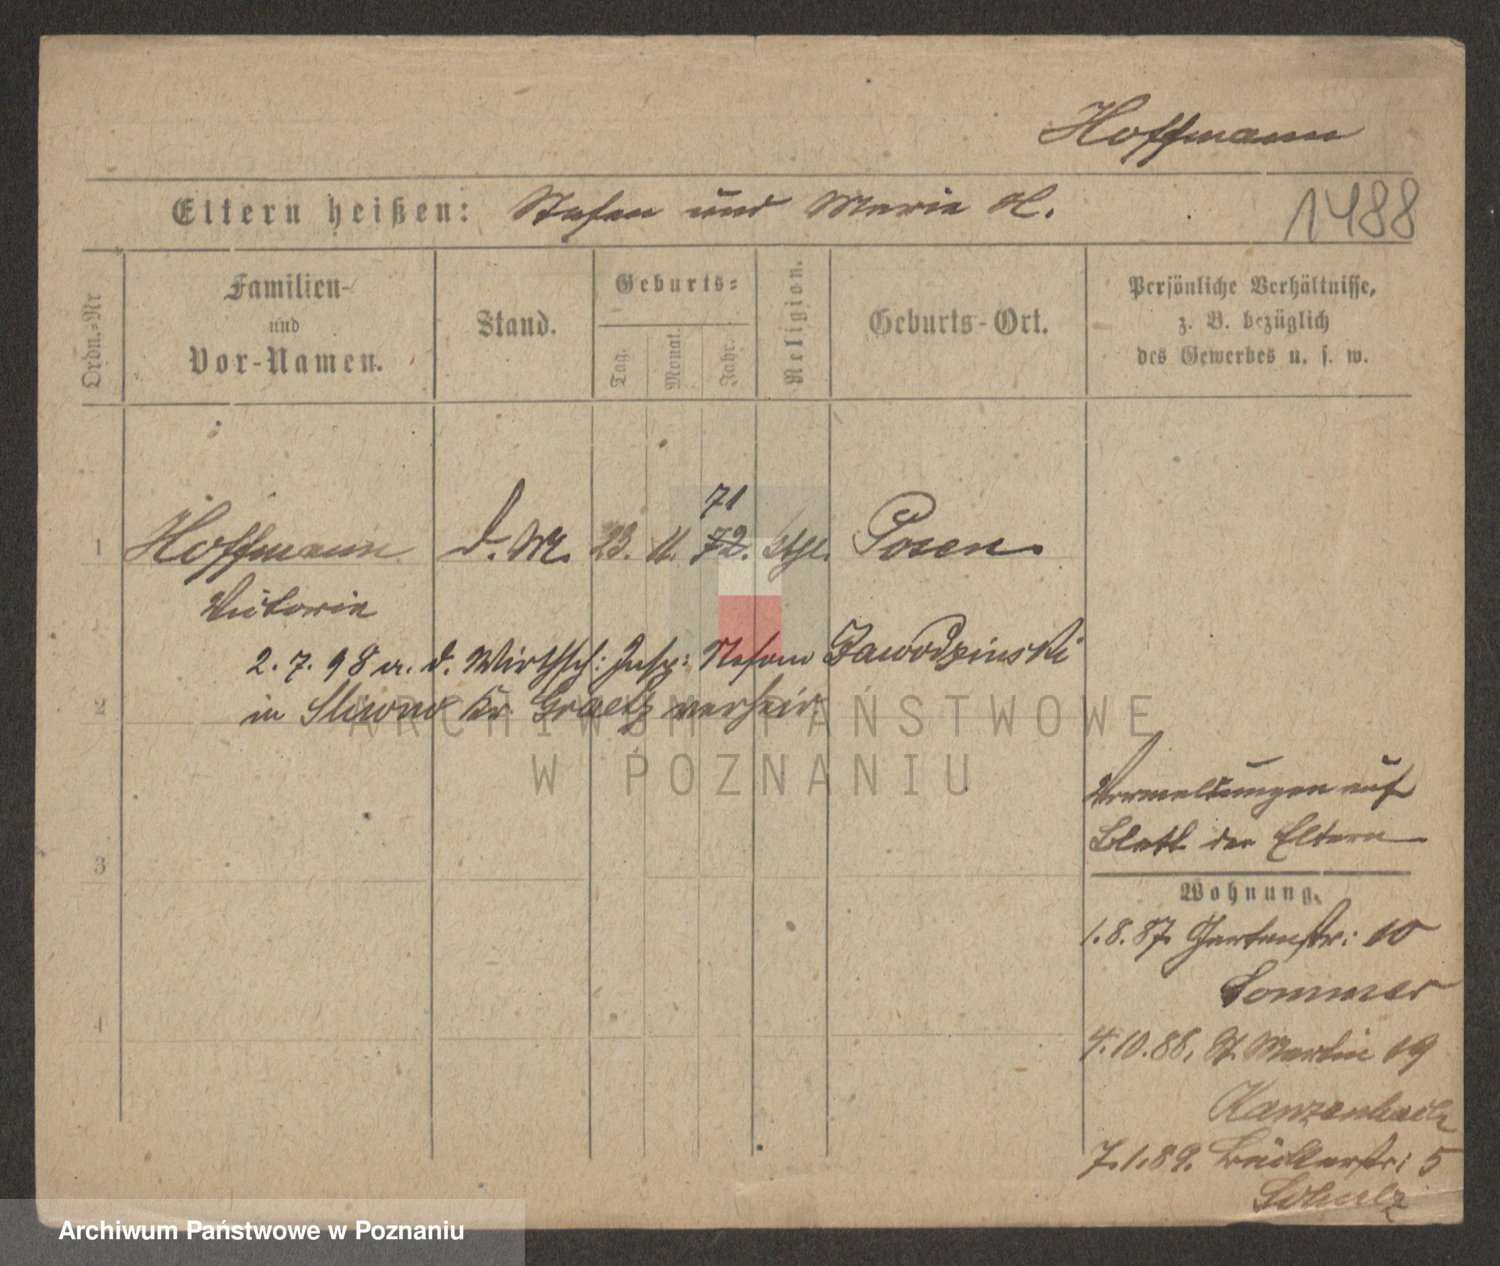 Hoffmann
Eltern heißen: Stefan und Marie H.
1488
Ordn.-Nr
Familien-
und
Vor-Namen.
Stand.
Geburts-
Tag.
Monat.
Jahr.
Religion.
Geburts-Ort.
Persönliche Verhältnisse,
z. B. bezüglich
des Gewerbes u. s. w.
71
1 Hoffmann d. M. 23. 11. 72. kth. Posen
Victoria
2. 7. 98 a. d. Wirthsch: Insp: Stefan Zawodzinski
in Sliwno Kr Graetz verheir
2
ARCHIWUM PAŃSTWOWE
W POZNANIU
Vermeldungen auf
Blatt der Eltern
3
Wohnung.
1. 8. 87. Gartenstr: 10
Sommer
4
4. 10. 88. St. Martin 19
Kanzenbach
7. 1. 89. Bäckerstr: 5
Schulz
Archiwum Państwowe w Poznaniu